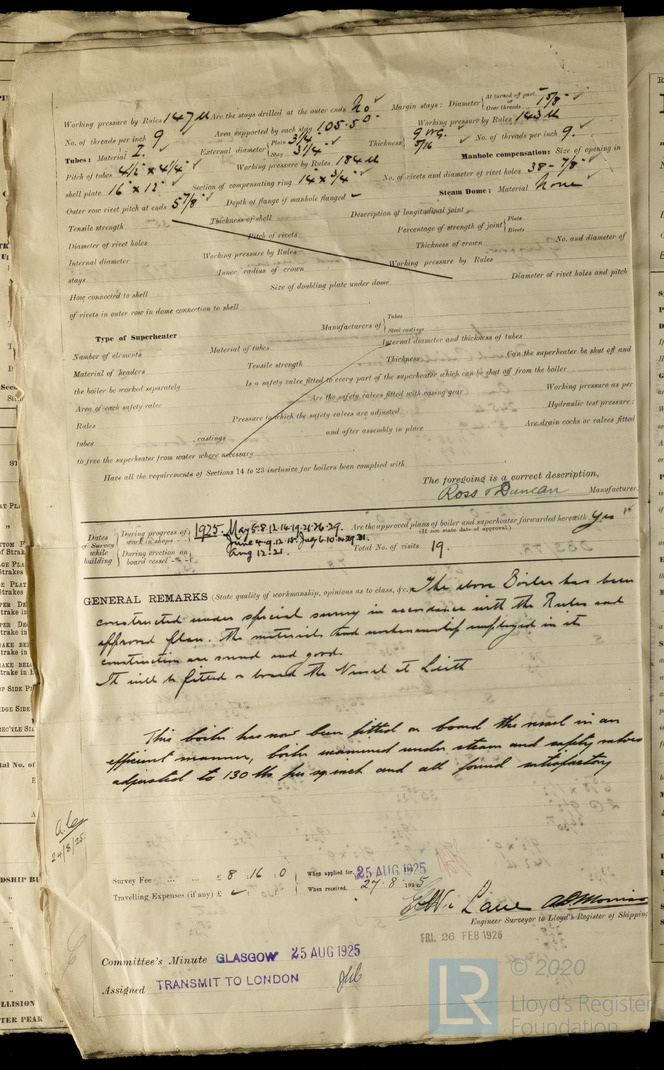 Working pressure by Rules 147 lb Are the stays drilled at the outer ends No Margin stays: Diameter { At turned off part, Over threads 1 5/8"
No. of threads per inch 9 Area supported by each stay 105.50" Working pressure by Rules 143 lb
Tubes: Material I. External diameter { Plain 3 1/4 Stay 3 1/4" Thickness { 9 WG. 5/16 No. of threads per inch 9.
Pitch of tubes 4 1/2" x 4 1/4" Working pressure by Rules 184 lb Manhole compensation: Size of opening in
shell plate 16" x 12" Section of compensating ring 14" x 3/4" No. of rivets and diameter of rivet holes 38 - 7/8"
Outer row rivet pitch at ends 5 7/8" Depth of flange if manhole flanged Steam Dome: Material None
Tensile strength Thickness of shell Description of longitudinal joint
Diameter of rivet holes Pitch of rivets Percentage of strength of joint { Plate Rivets
Internal diameter Working pressure by Rules Thickness of crown No. and diameter of
stays Inner radius of crown Working pressure by Rules
How connected to shell Size of doubling plate under dome Diameter of rivet holes and pitch
of rivets in outer row in dome connection to shell
Type of Superheater Manufacturers of { Tubes Steel castings
Number of elements Material of tubes Internal diameter and thickness of tubes
Material of headers Tensile strength Thickness Can the superheater be shut off and
the boiler be worked separately Is a safety valve fitted to every part of the superheater which can be shut off from the boiler
Area of each safety valve Are the safety valves fitted with easing gear Working pressure as per
Rules Pressure to which the safety valves are adjusted Hydraulic test pressure:
tubes castings and after assembly in place Are drain cocks or valves fitted
to free the superheater from water where necessary
Have all the requirements of Sections 14 to 23 inclusive for boilers been complied with
The foregoing is a correct description,
Ross & Duncan Manufacturer.
Dates of Survey while building
During progress of work in shops - - 1925. May 5.8.12.14.19.21.26.29.
June 4.9.12.
During erection on board vessel - - - Aug 12.21.
Are the approved plans of boiler and superheater forwarded herewith Yes
(If not state date of approval.)
Total No. of visits 19.
GENERAL REMARKS (State quality of workmanship, opinions as to class, &c. The above Boiler has been
constructed under special survey in accordance with the Rules and
approved plan. The material and workmanship employed in its
construction are sound and good.
It will be fitted on board the Vessel at Leith
This boiler has now been fitted on board the vessel in an
efficient manner, boiler examined under steam and safety valves
adjusted to 130 lbs per sq inch and all found satisfactory
24/8/25
Survey Fee ... ... £ 8 : 16 : 0 When applied for, 25 AUG 1925
Travelling Expenses (if any) £ When received, 27.8.1925
Engineer Surveyor to Lloyd's Register of Shipping
FRI. 26 FEB 1926
Committee's Minute GLASGOW 25 AUG 1925
Assigned TRANSMIT TO LONDON
LR © 2020
Lloyd's Register
Foundation